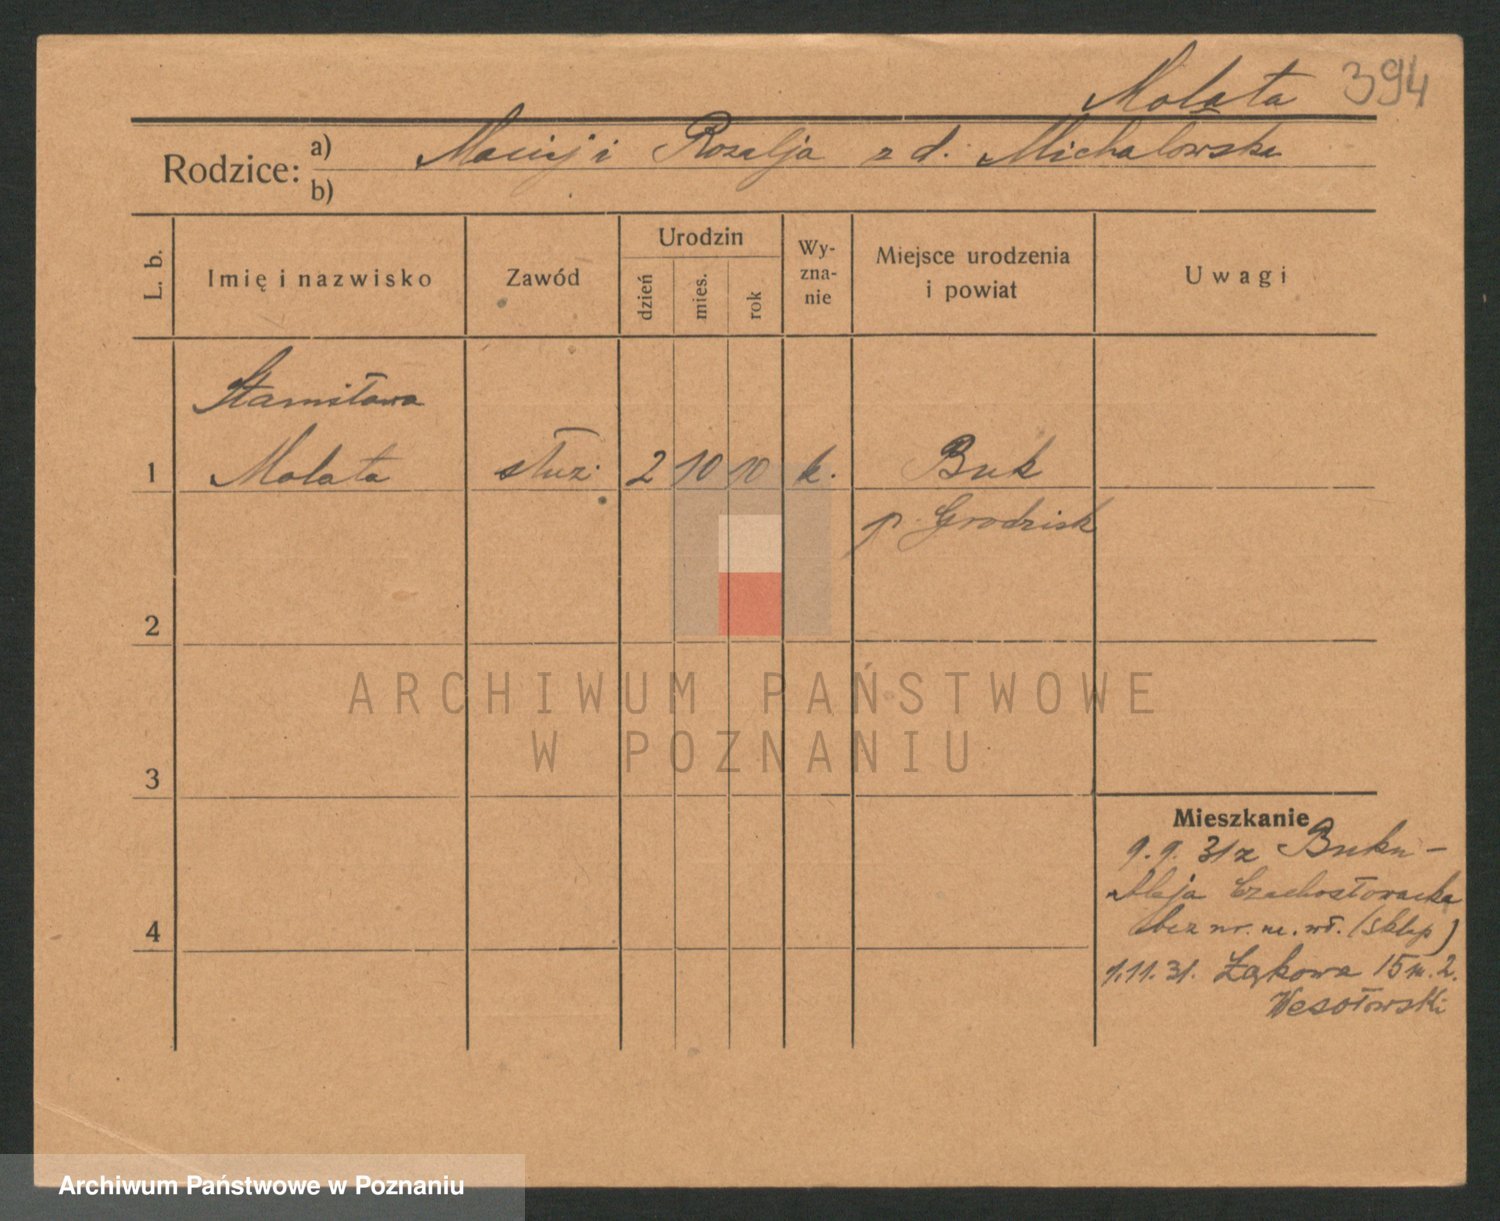 Molata 394
Rodzice: a) Maciej i Rozalja z d. Michalowska
b)
L. b.
Imię i nazwisko
Zawód
Urodzin
dzień
mies.
rok
Wy-
zna-
nie
Miejsce urodzenia
i powiat
Uwagi
Stanisława
1 Molata służ. 2 10 10 k. Buk
p. Grodzisk
2
ARCHIWUM PAŃSTWOWE
W POZNANIU
3
Mieszkanie
9.9.31 z Buku –
Aleja Czechosłowacka
4 bez nr. m. wł. (sklep)
1.11.31. Łąkowa 15 m. 2.
Wesołowski
Archiwum Państwowe w Poznaniu